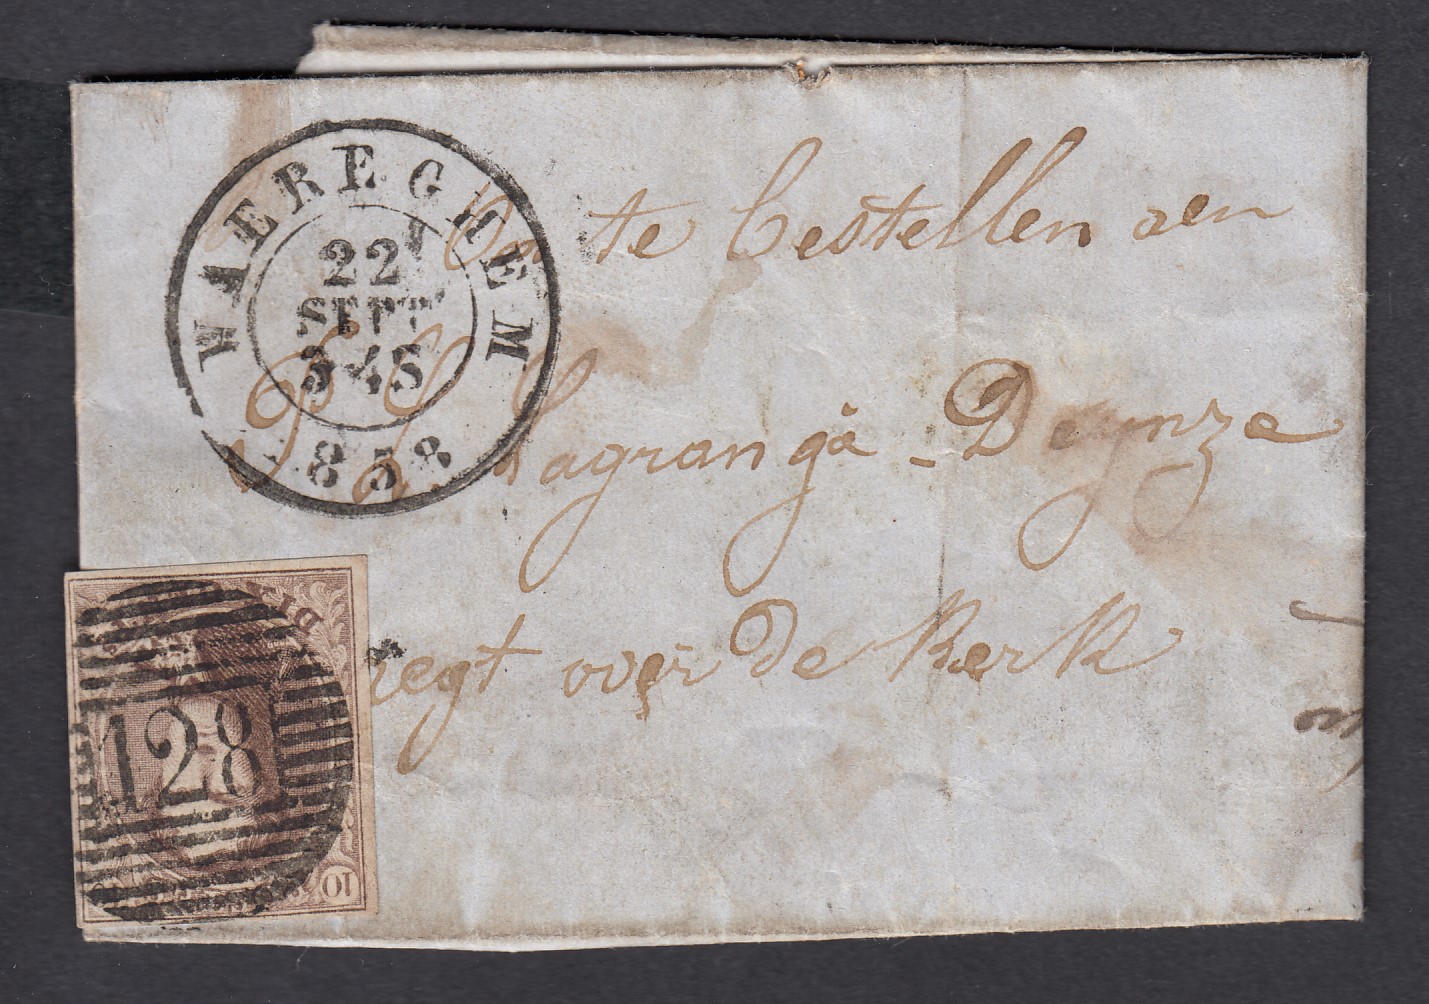 WAEREGHEM
22
SEPT
3-4S
1858
Om te bestellen aen
Lagrangà - Deynze
regt over de Kerk
128
10